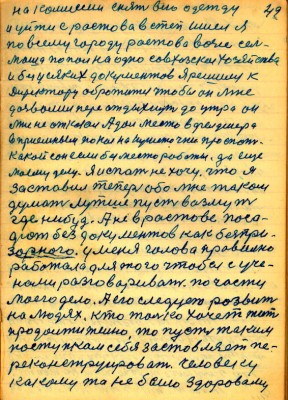 на комиссии снять вию одежду 42
и уйти с ростова в степ шися я
по всему городу ростова возле сел-
маша попои на одно совхозски хозяйства
и был у сяких документов Я решил к
директору обротится чтобы он мне
дозволил переотдыхнуть до утра он
мне не отказал Адал место в
в приемным покои на кушеточки проспат.
какой сон если бы место работы, да еще
моему делу. Я испат не хочу, что я
заставил теперь обо мне таком
думат лутше пуст возмут
где нибуд. А не в ростове поса-
дят без документов как безпри-
зорного. у меня голова правильно
работала для того чтобы с уче-
ными разговариват по части
моего дело. А его следует розвит
на людях. кто только хочет жит
продолжително, то пусть таким
поступком себя заставляет пе-
реконструироват человеку
какому та не было здоровому